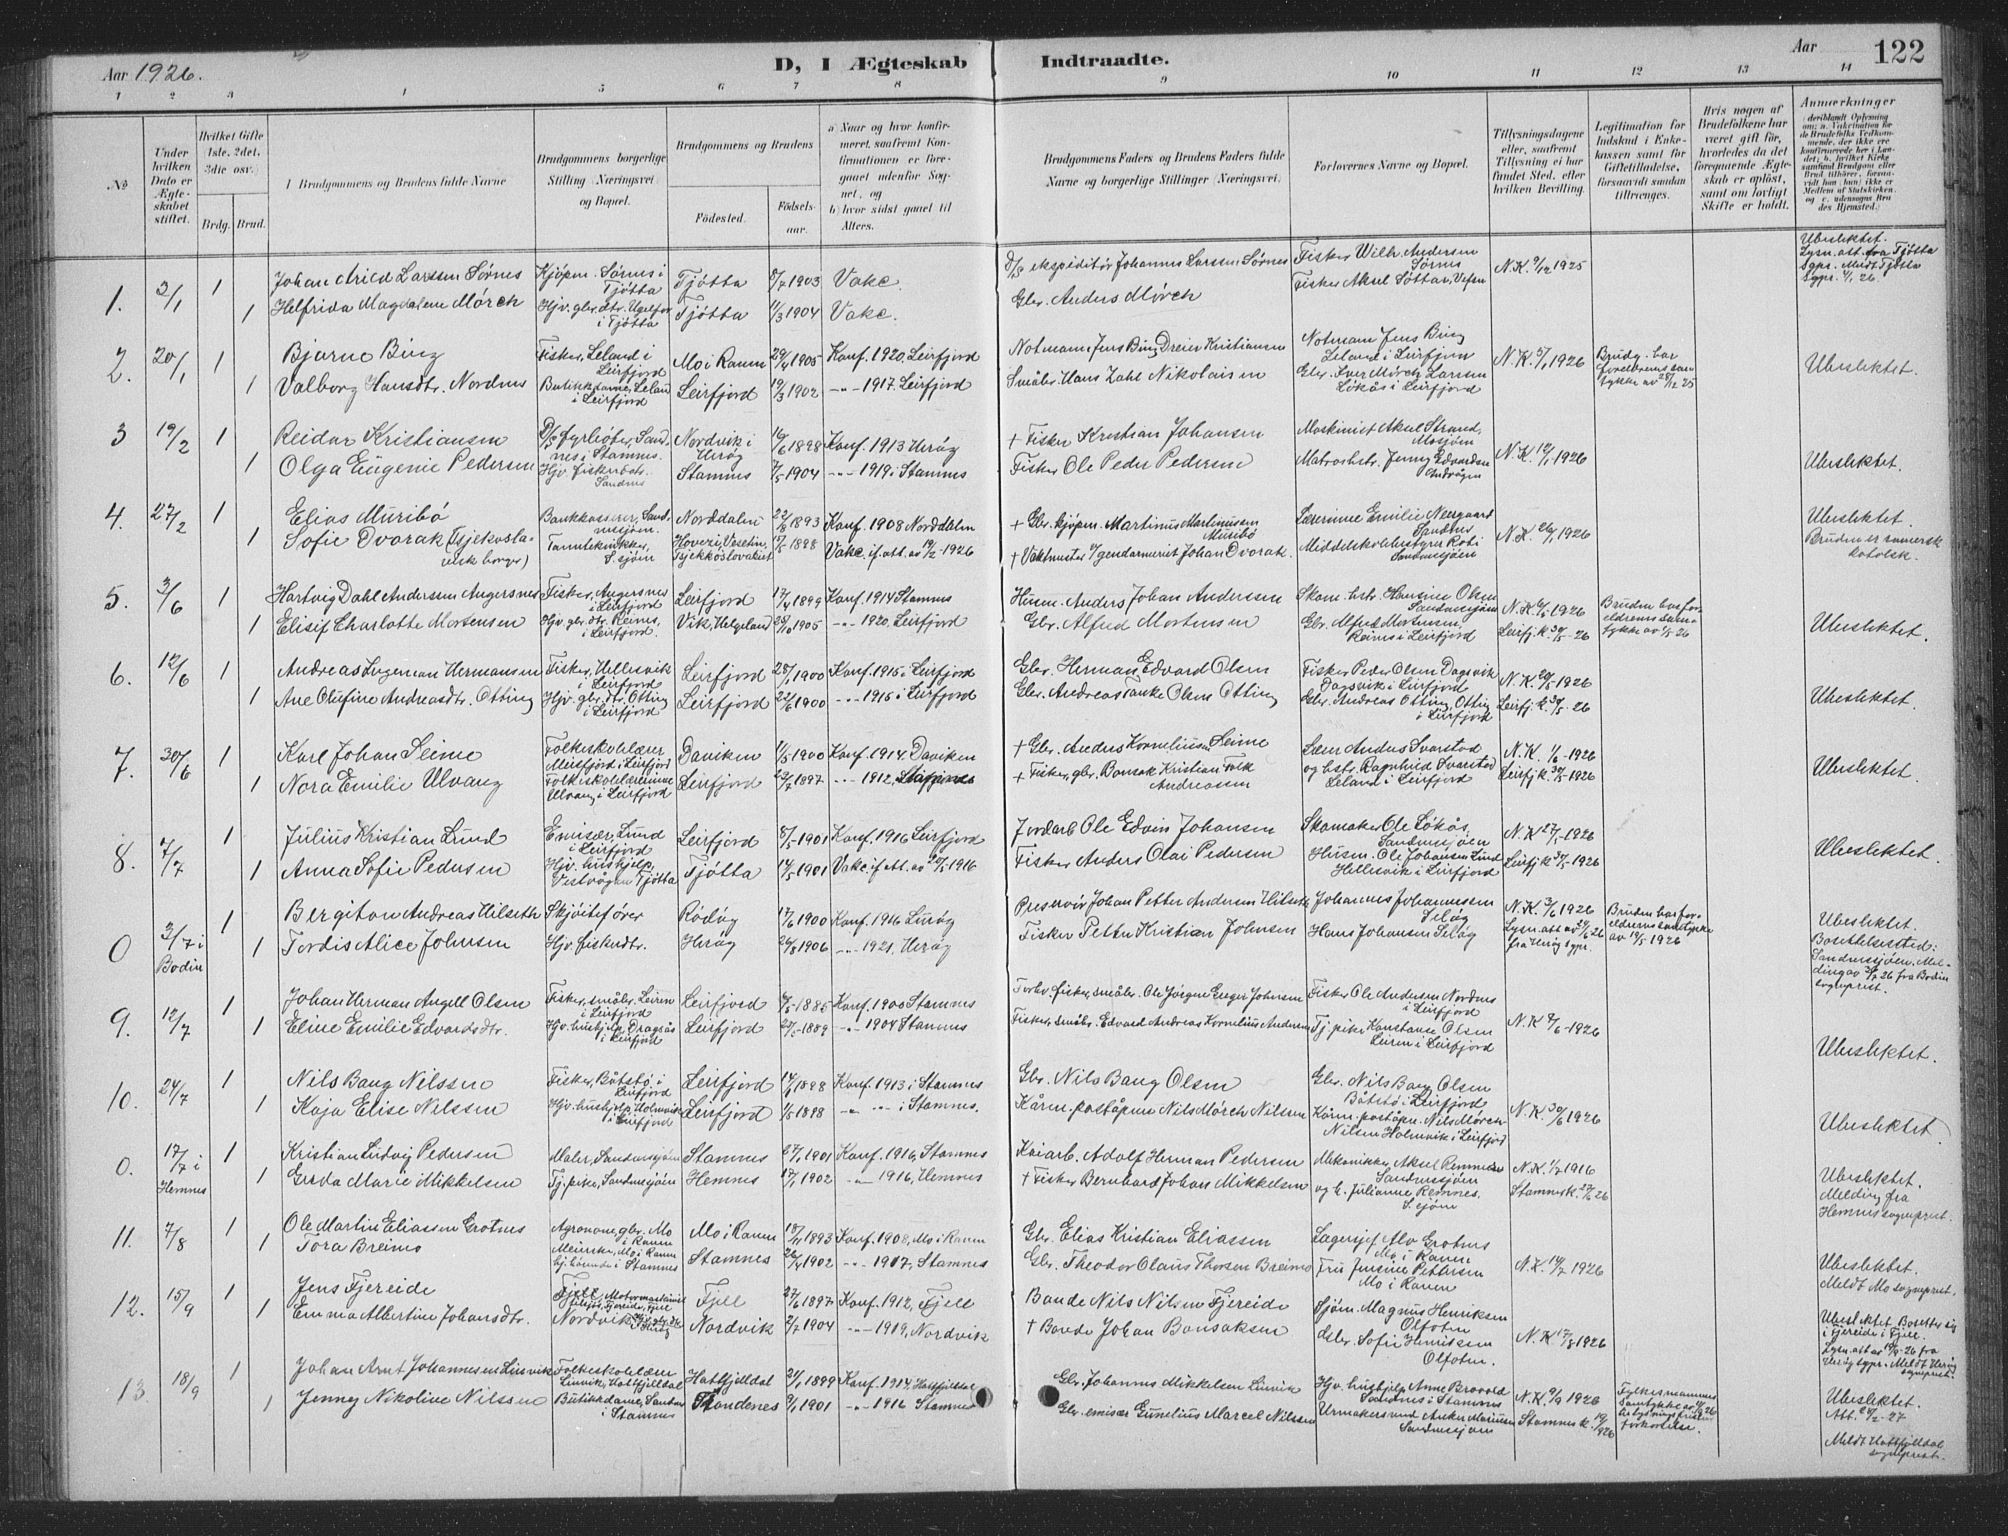 Aar 1926.
D, I Ægteskab Indtraadte.
Aar 122
1 2 3 4 5 6 7 8 9 10 11 12 13 14
No
Under hvilken Dato er Ægteskabet stiftet.
Hvilket Gifte 1ste, 2det, 3die osv.
Brdg. Brud.
Brudgommens og Brudens fulde Navne
Brudgommens borgerlige Stilling (Næringsvei) og Bopæl.
Brudgommens og Brudens
Födested.
Födselsaar.
a) Naar og hvor konfirmeret, saafremt Konfirmationen er foregaaet udenfor Sognet, og
b) hvor sidst gaaet til Alters.
Brudgommens Faders og Brudens Faders fulde Navne og borgerlige Stillinger (Næringsvei).
Forlovernes Navne og Bopæl.
Tillysningsdagene eller, saafremt Tillysning ei har fundet Sted, efter hvilken Bevilling.
Legitimation for Indskud i Enkekassen samt for Giftetilladelse, forsaavidt saadan tiltrænges.
Hvis nogen af Brudefolkene har været gift för, hvorledes da det foregaaende Ægteskab er oplöst, samt om lovligt Skifte er holdt.
Anmærkninger
1. 2/1 1 Johan Arild Larssen Sørnes Kjøpm. Sørnes i Tjøtta Tjøtta 8/7 1903 Vake. D/S ekspeditør Johannes Larssen Sørnes Fisker Wilh. Andersen Sørnes N.K. 9/12 1925 Ubeslektet. Lysn. att. fra Tjøtta Sgpr. Meldt Tjøtta Sgpr. 4/1 26.
1 Helfrida Magdalene Mørch Hjv. gbr. dtr. i Tjøtta Tjøtta 11/3 1904 Vake. Gbr. Anders Mørch Fisker Aksel Søttar, Vefsn
2. 20/1 1 Bjarne Bing Fisker, Leland i Leirfjord Mo i Ranen 29/4 1905 Konf. 1920, Leirfjord Notmann Jens Bing Dreier Kristiansen Notmann Jens Bing Leland i Leirfjord N.K. 5/1 1926 Brudg. har forelderenes samtykke av 28/12 25 Ubeslektet.
1 Valborg Hansdtr. Nordnes Butikkdame, Leland i Leirfjord Leirfjord 19/3 1902 -"- 1917 Leirfjord Småbr. Hans Zahl Nikolaisen Gbr. Iver Mörch Larssen Løkås i Leirfjord
3 19/2 1 Reidar Kristiansen D/S fyrbøter, Sandnes i Stamnes. Nordvik i Herøy 16/6 1898 Konf. 1913 Herøy + Fisker Kristian Johansen Maskinist Aksel Strand, Mosjøen N.K. 12/1 1926
1 Olga Eugenie Pedersen Hjv. fiskerdtr. Sandnes Stamnes 7/5 1904 -"- 1919 i Stamnes Fisker Ole Peder Pedersen Matroshstr. Jenny Edvardsen Ubeslektet.
4. 27/2 1 Elias Muribø Bankkasserer, Sandnessjøen. Norddalen 22/8 1893 Konf. 1908 Norddalen + Gbr. kjøpm. Martinus Martinussen Muribø Lærerinne Emilie Neergaard Sandnes N.K. 26/1 1926 Ubeslektet.
1 Sofie Dvorak (Tsjekoslovakisk borger) Tanntekniker, S. sjøen Hovezi, Vesetin, Tsjekkoslovakiet 17/5 1898 Vake. if. att. av 19/2-1926 + Vaktmester v/gendarmerist Johan Dvorak Middelskolebestyrer Roti Sandnessjøen Bruden er romersk katolsk.
5. 3/6 1 Hartvig Dahl Andersen Angersnes Fisker, Angersnes i Leirfjord Leirfjord 17/4 1899 Konf. 1914 Stamnes Husm. Anders Johan Anderssen Skom. hstr. Hansine Olsen Sandnessjøen N.K. 6/5 1926 Bruden har forelderenes samtykke av 1/5 26
1 Elisif Charlotte Mortensen Hjv. gbr. dtr. Reines, i Leirfjord. Vik, Helgeland 29/10 1905 -"- 1920, Leirfjord Gbr. Alfred Mortensen Gbr. Alfred Mortensen, Reines i Leirfjord Leirfj. k. 30/5-26 Ubeslektet.
6. 12/6 1 Andreas Ingeman Hermansen Fisker, Hellesvik i Leirfjord Leirfjord 28/1 1900 Konf. 1915 i Leirfjord Gbr. Herman Edvard Olsen Fisker Peder Olsen Dagsvik Dagsvik i Leirfjord N.K. 20/5 1926
1 Ane Olefine Andreasdtr. Otting Hjv. gbr. dtr. Otting i Leirfjord Leirfjord 22/6 1900 -"- 1915 i Leirfjord Gbr. Andreas Tanke Olsen Otting Gbr. Andreas Otting, Otting i Leirfjord Leirfj. k. 30/5-26 Ubeslektet.
7. 30/6 1 Karl Johan Seime Folkeskolelærer Meisfjord i Leirfjord Daviken 1/5 1900 Konf. 1914 Daviken + Gbr. Anders Kornelius Seime Lærer Anders Svarstad N.K. 1/6-1926
1 Nora Emilie Ulvang Folkeskolelærerinne Ulvang i Leirfjord Leirfjord 29/7 1897 -"- 1912, Stamnes + Fisker, gbr. Bonsak Kristian Falk Andreassen og hstr. Ragnhild Svarstad Leland i Leirfjord Leirfj. k. 30/5-1926 Ubeslektet.
8. 7/7 1 Julius Kristian Lund Emisær, Lund i Leirfjord Leirfjord 8/5 1901 Konf. 1916 Leirfjord Jordarb. Ole Edvin Johansen Skomaker Ole Løkås, Sandnessjøen N.K. 27/5-1926
1 Anna Sofie Pedersen Hjv. hushjelp, Vestvågen Tjøtta Tjøtta 14/5 1901 Vake. if. att. av 20/5 1916 Fisker Anders Olai Pedersen Husm. Ole Johansen Lund Hellesvik i Leirfjord Leirfj. k. 30/5 1926 Ubeslektet.
0 3/7 i Bodin 1 Bergiton Andreas Hilseth Skjøitefører Rødøy 17/6 1900 Konf. 1916 Lurøy Preservør Johan Petter Andersen Hilseth Johannes Johannessen Seløy N.K. 3/6 1926 Bruden har forelderenes samtykke av 19/5 1926 Ubeslektet.
1 Tordis Alice Johnsen Hjv. fiskerdtr. Herøy 26/8 1906 -"- 1921, Herøy Fisker Petter Kristian Johnsen Hans Johansen Seløy Lysn. att. av 24/6 26 fra Herøy sgpr. Bosettelsessted: Sandnessjøen. Melding av 3/7 26 fra Bodin sogneprest.
9. 12/7 1 Johan Herman Angell Olsen Fisker, småbr. Leiren i Leirfjord Leirfjord 7/5-1885 Konf. 1900 Stamnes Forhv. fisker, småbr. Ole Jørgen Greger Johansen Fisker Ole Andersen Nordnes i Leirfjord
1 Eline Emilie Edvardsdtr. Hjv. hushjelp, Dragsås i Leirfjord Leirfjord 27/5-1889 -"- 1904 Stamnes Fisker, småbr. Edvard Andreas Kornelius Andersen Tj. pike Konstanse Olsen Leiren i Leirfjord N.K. 7/6-1926 Ubeslektet.
10. 24/7 1 Nils Bang Nilssen Fisker, Båtstø i Leirfjord Leirfjord 14/1 1898 Konf. 1913 i Stamnes Gbr. Nils Bang Olsen Gbr. Nils Bang Olsen Båtstø i Leirfjord
1 Kaja Elise Nilssen Hjv. hushjelp, Holmvik i Leirfjord Leirfjord 1/5 1898 -"- -"- i Stamnes. Kårm. poståpner Nils Mörch Nilssen Kårm. poståpn. Nils Mörch Nilsen Holmvik i Leirfjord N.K. 30/6 1926 Ubeslektet.
0. 17/7 i Hemnes 1 Kristian Ludvig Pedersen Maler, Sandnessjøen Stamnes 27/1 1901 Konf. 1916, Stamnes Kaiarb. Adolf Herman Pedersen Mekaniker Aksel Remmen Sandnessjøen N.K. 1/7 1916 Ubeslektet.
1 Gerda Marie Mikkelsen Tj. pike, Sandnessjøen Hemnes 17/1 1902 -"- 1916, Hemnes + Fisker Bernhard Johan Mikkelsen og h. Julianne Remnes, S. sjøen Stamnes k. 27/6 26 Melding fra Hemnes sogneprest.
11. 7/8 1 Ole Martin Eliassen Grotnes Agronom, gbr. Mo i Ranen Mo i Ranen 18/11 1893 Konf. 1908, Mo i Ranen Gbr. Elias Kristian Eliassen Lagersjef Alv Grotnes Mo i Ranen
1 Tora Breimo Meierske, Mo i Ranen hj. hörende i Stamnes Stamnes 26/4 1902 -"- 1917, Stamnes Gbr. Theodor Olaus Thorsen Breimo Fru Jensine Pettersen Mo i Ranen N.K. 14/7 1926 Ubeslektet. Meldt Mo sogneprest.
12. 15/9 1 Jens Fjereide Fjell, Fjereide, Fjell Fjell 27/6 1897 Konf. 1912, Fjell Bonde Nils Nilsen Fjereide Sjøm. Magnus Henriksen Olfoten
1 Emma Albertine Johansdtr. Nordvik Nordvik 2/7 1904 -"- 1919, Nordvik + Bonde Johan Bonsaksen Gbr. Sofie Henriksen Olfoten. N.K. 17/8 1926 Ubeslektet. Bosetter sig i Fjereide i Fjell. Lysn. att av 14/9-26 fra Herøy sgpr. Meldt Herøy sogneprest.
13 18/9 1 Johan Arnt Johannesen Linvik Folkeskolelærer Linvik, Hattfjelldal Hattfjelldal 21/1 1899 Konf. 1914, Hattfjelldal Gbr. Johannes Mikkelsen Linvik Hjv. hushjelp Anne Brovold Sandnes i Stamnes N.K. 9/9 1926 Fylkesmannens samtykke av 11/9 26 Ubeslektet.
1 Jenney Nikoline Nilssen Butikkdame, Sandnes i Stamnes Trondenes 9/1 1901 -"- 1916 Stamnes Gbr. emisær Cunelius Marcel Nilssen Urmakersvend Anker Mariussen Sandnessjøen Stamnes k. 12/9 1926 forkortelse. Att. 24/2-27 Meldt Hattfjelldal sogneprest.